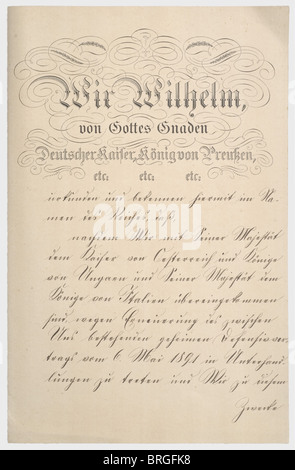 Wir Wilhelm,
von Gottes Gnaden
Deutscher Kaiser, König von Preußen,
etc. etc. etc.
urkunden und bekennen hiermit im Na-
men des Reichs, daß
nachdem Wir mit Seiner Majestät
dem Kaiser von Oesterreich und Könige
von Ungarn und Seiner Majestät dem
Könige von Italien übereingekommen
sind wegen Erneuerung des zwischen
Uns bestehenden geheimen Defensivver-
trags vom 6 Mai 1891 in Unterhand-
lungen zu treten und Wir zu diesem
Zwecke
alamy
www.alamy.com - BRGFK8